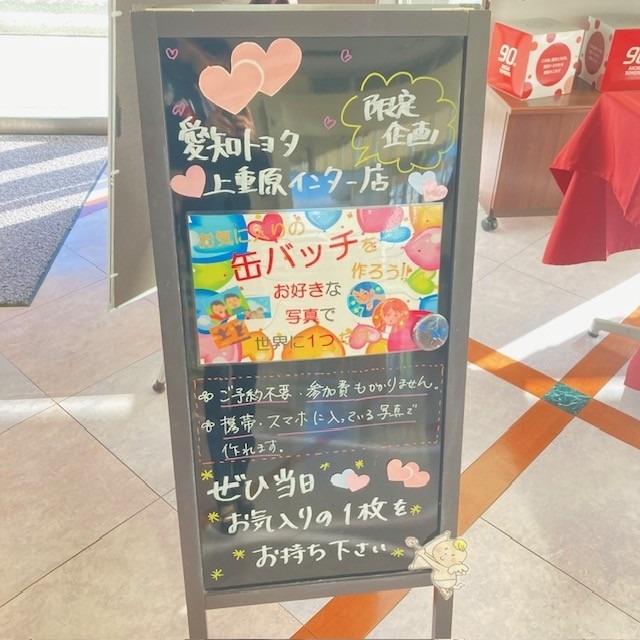 愛知トヨタ
限定
企画!
上重原インター店
お気に入りの
缶バッチを
作ろう!!
お好きな
写真で
世界に1つ
ご予約不要・参加費もかかりません。
携帯・スマホに入っている写真で
作れます。
ぜひ当日
お気入りの1枚を
お持ち下さい
90
90